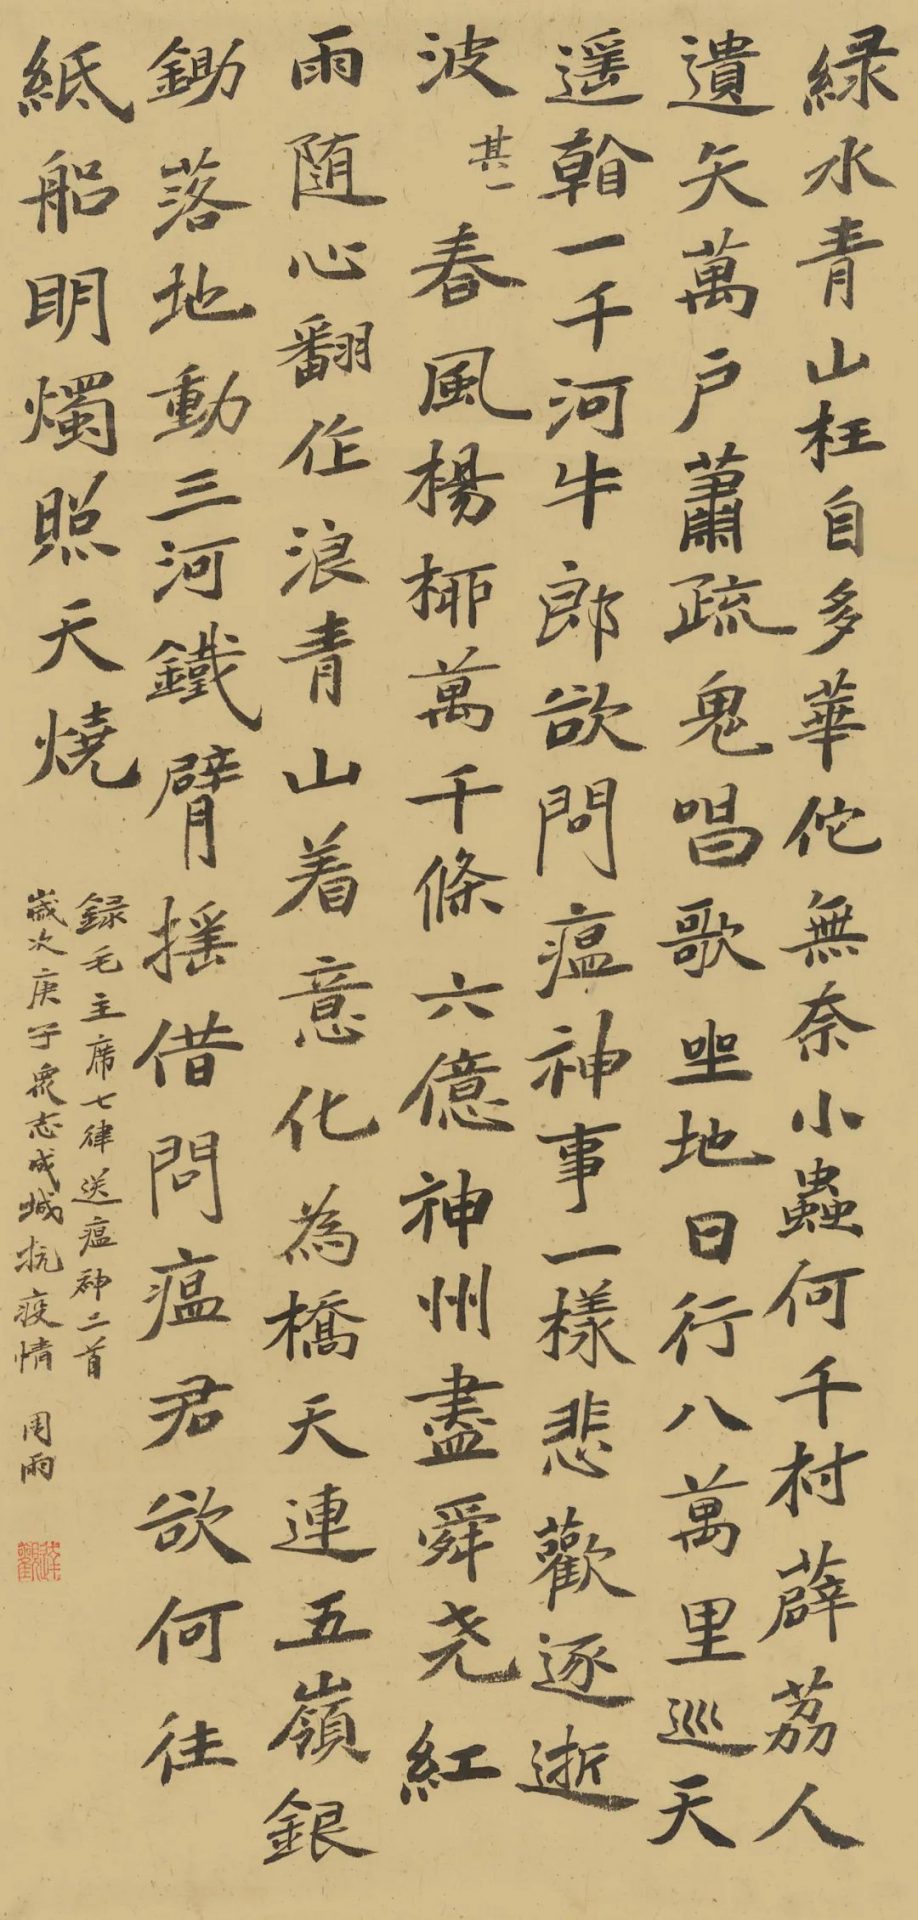 緑水青山枉自多華佗無奈小蟲何千村薜荔人
遺矢萬户蕭疏鬼唱歌坐地日行八萬里巡天
遥看一千河牛郎欲問瘟神事一樣悲歡逐逝
波 其一 春風楊柳萬千條六億神州盡舜尧紅
雨随心翻作浪青山着意化為橋天連五嶺銀
鋤落地動三河鐵臂摇借問瘟君欲何往
紙船明燭照天燒
録毛主席七律送瘟神二首
歲次庚子衆志成城抗疫情 周雨